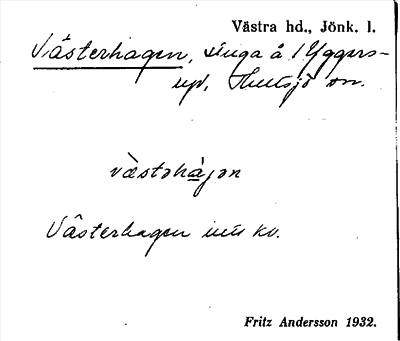 Västra hd., Jönk. l.
Västerhagen, stuga å 1 Yggers-
ryd, Hultsjö sn.
vàstəhàgən
Västerhagen kv.
Fritz Andersson 1932.